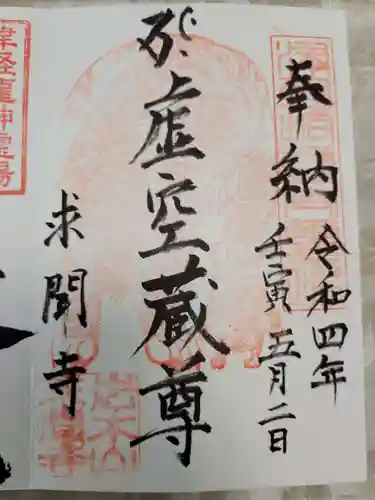 奉納
令和四年
壬寅五月二日
虚空蔵尊
求聞寺
津軽龍神霊場